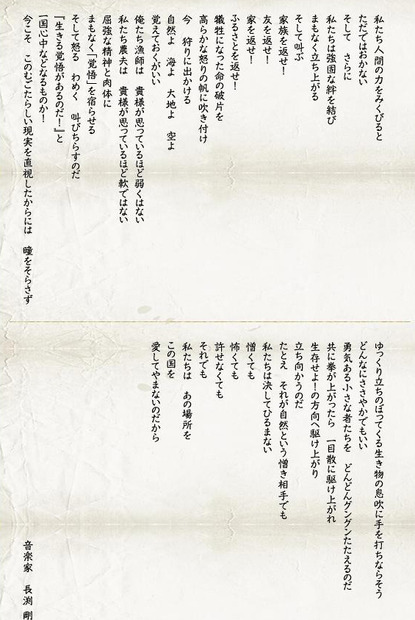 私たち人間の力をみくびると
ただではおかない
そして さらに
私たちは強固な絆を結び
まもなく立ち上がる
そして叫ぶ
家族を返せ!
友を返せ!
家を返せ!
ふるさとを返せ!
犠牲になった命の破片を
高らかな怒りの帆に吹き付け
今 狩りに出かける
自然よ 海よ 大地よ 空よ
覚えておくがいい
俺たち漁師は 貴様が思っているほど弱くはない
私たち農夫は 貴様が思っているほど軟ではない
屈強な精神と肉体に
まもなく「覚悟」を宿らせる
そして怒る わめく 叫びちらすのだ
『生きる覚悟があるのだ!』と
「国心中などなるものか!
今こそ このむごたらしい現実を直視したからには 瞳をそらさず
ゆっくり立ちのぼってくる生き物の息吹に手を打ちならそう
どんなにささやかでもいい
勇気ある小さな者たちを どんどんグングンたたえるのだ
共に拳が上がったら 一目散に駆け上がれ
生存せよ!の方向へ駆け上がり
立ち向かうのだ
たとえ それが自然という憎き相手でも
私たちは決してひるまない
憎くても
怖くても
許せなくても
それでも
私たちは あの場所を
この国を
愛してやまないのだから
音楽家 長渕 剛